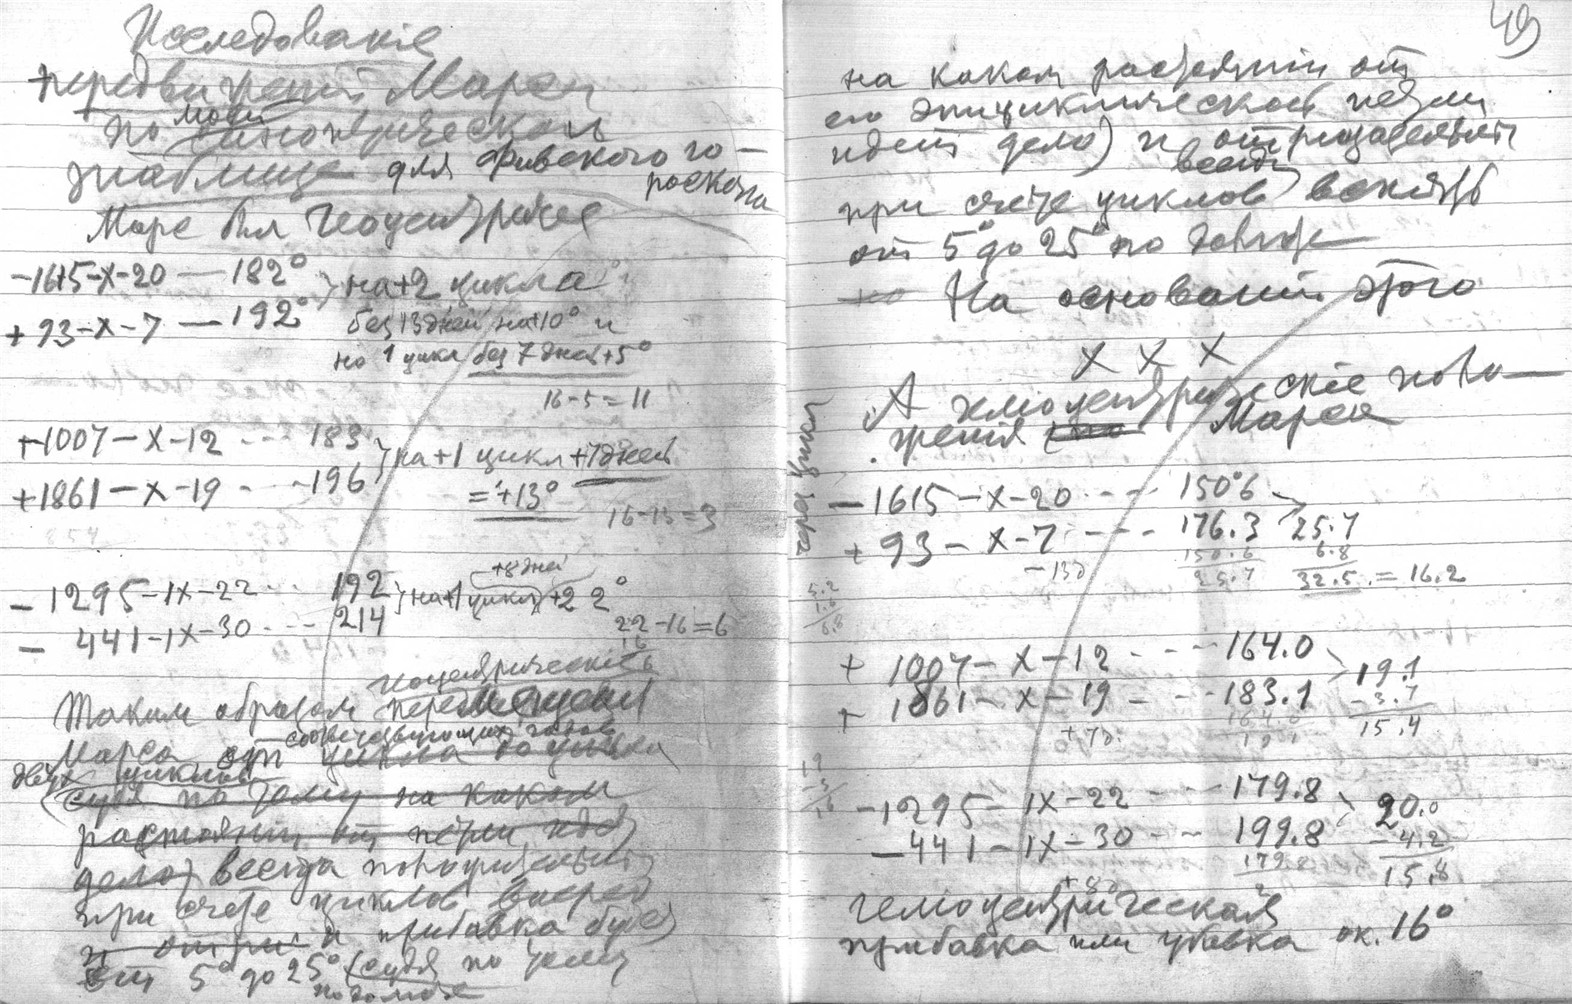 Исследованіе
передвиженій Марса
по моей синоптической
таблице для Фивского го-
роскопа
Марс был геоцентрически
-1615-X-20 — 182° } на +2 цикла
+93-X-7 — 192° без 13 дней на +10° и
на 1 цикл без 7 дней +5°
16-5=11
+1007-X-12 --- 183 } на +1 цикл +7 дней
+1861-X-19 --- 196 = +13°
16-13=3
+8 дней
-1295-IX-22 --- 192 } на +1 цикл +22°
-441-IX-30 --- 214
22-16=6
16
геоцентрическія
Таким образом перемещения
Марса от соответствующих годов
двух циклов цикла до цикла
(судя по тому на каком
расстоянии от петли идет
дело) всегда положительны
при счете циклов вперед
и отри и прибавка будет
от 5° до 25° (судя по тому
по долготе
49
на каком расстоянии от
его эпициклической петли
идет дело) и отрицательны
всегда
при счете циклов вспять
от 5° до 25° по долготе
На основании этого
X X X
А гелиоцентрическіе поло-
жения Марса
-1615-X-20 --- 150°6
+93-X-7 --- 176.3 25.7
-13д 150.6 6.8
25.7 32.5 = 16.2
5.2
1.6
6.8
+1007-X-12 --- 164.0 19.1
+1861-X-19 --- 183.1 -3.7
+7д. 164.0 15.4
19.1
-1295-IX-22 --- 179.8 20.0
-441-IX-30 --- 199.8 -4.2
+8д 179.8 15.8
гелиоцентрическая
прибавка или убавка ок. 16°